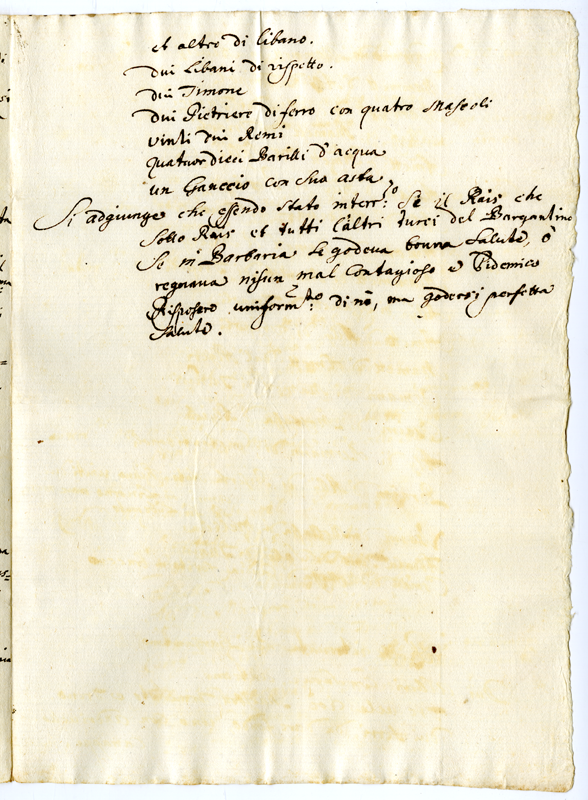 et altro di libano.
dui Libani di rispetto.
dui Timone
dui Pietriere di ferro con quatro Mascoli
vinti dui Remi
quatuordieci Barilli d'acqua
un Ganccio con sua asta
Si adgiunge che essendo stato interr.to Se il Rais che
sotto Rais et tutti l'altri turci del Bargantino
Se in Barbaria se godeva bouna salute, ò
regnava nisun mal Contagioso e Pidemico
Risposero uniform.to: di nò, ma godersi perfetta
salute.